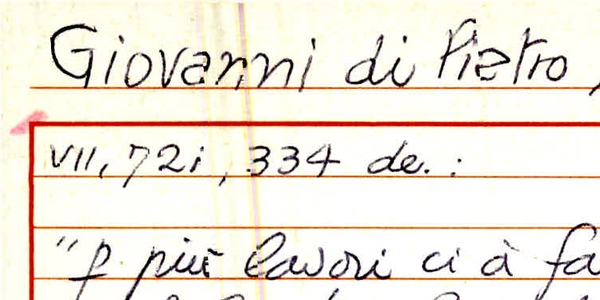 Giovanni di Pietro,
VII, 72i, 334 de. :
"p più lavori ci à fa